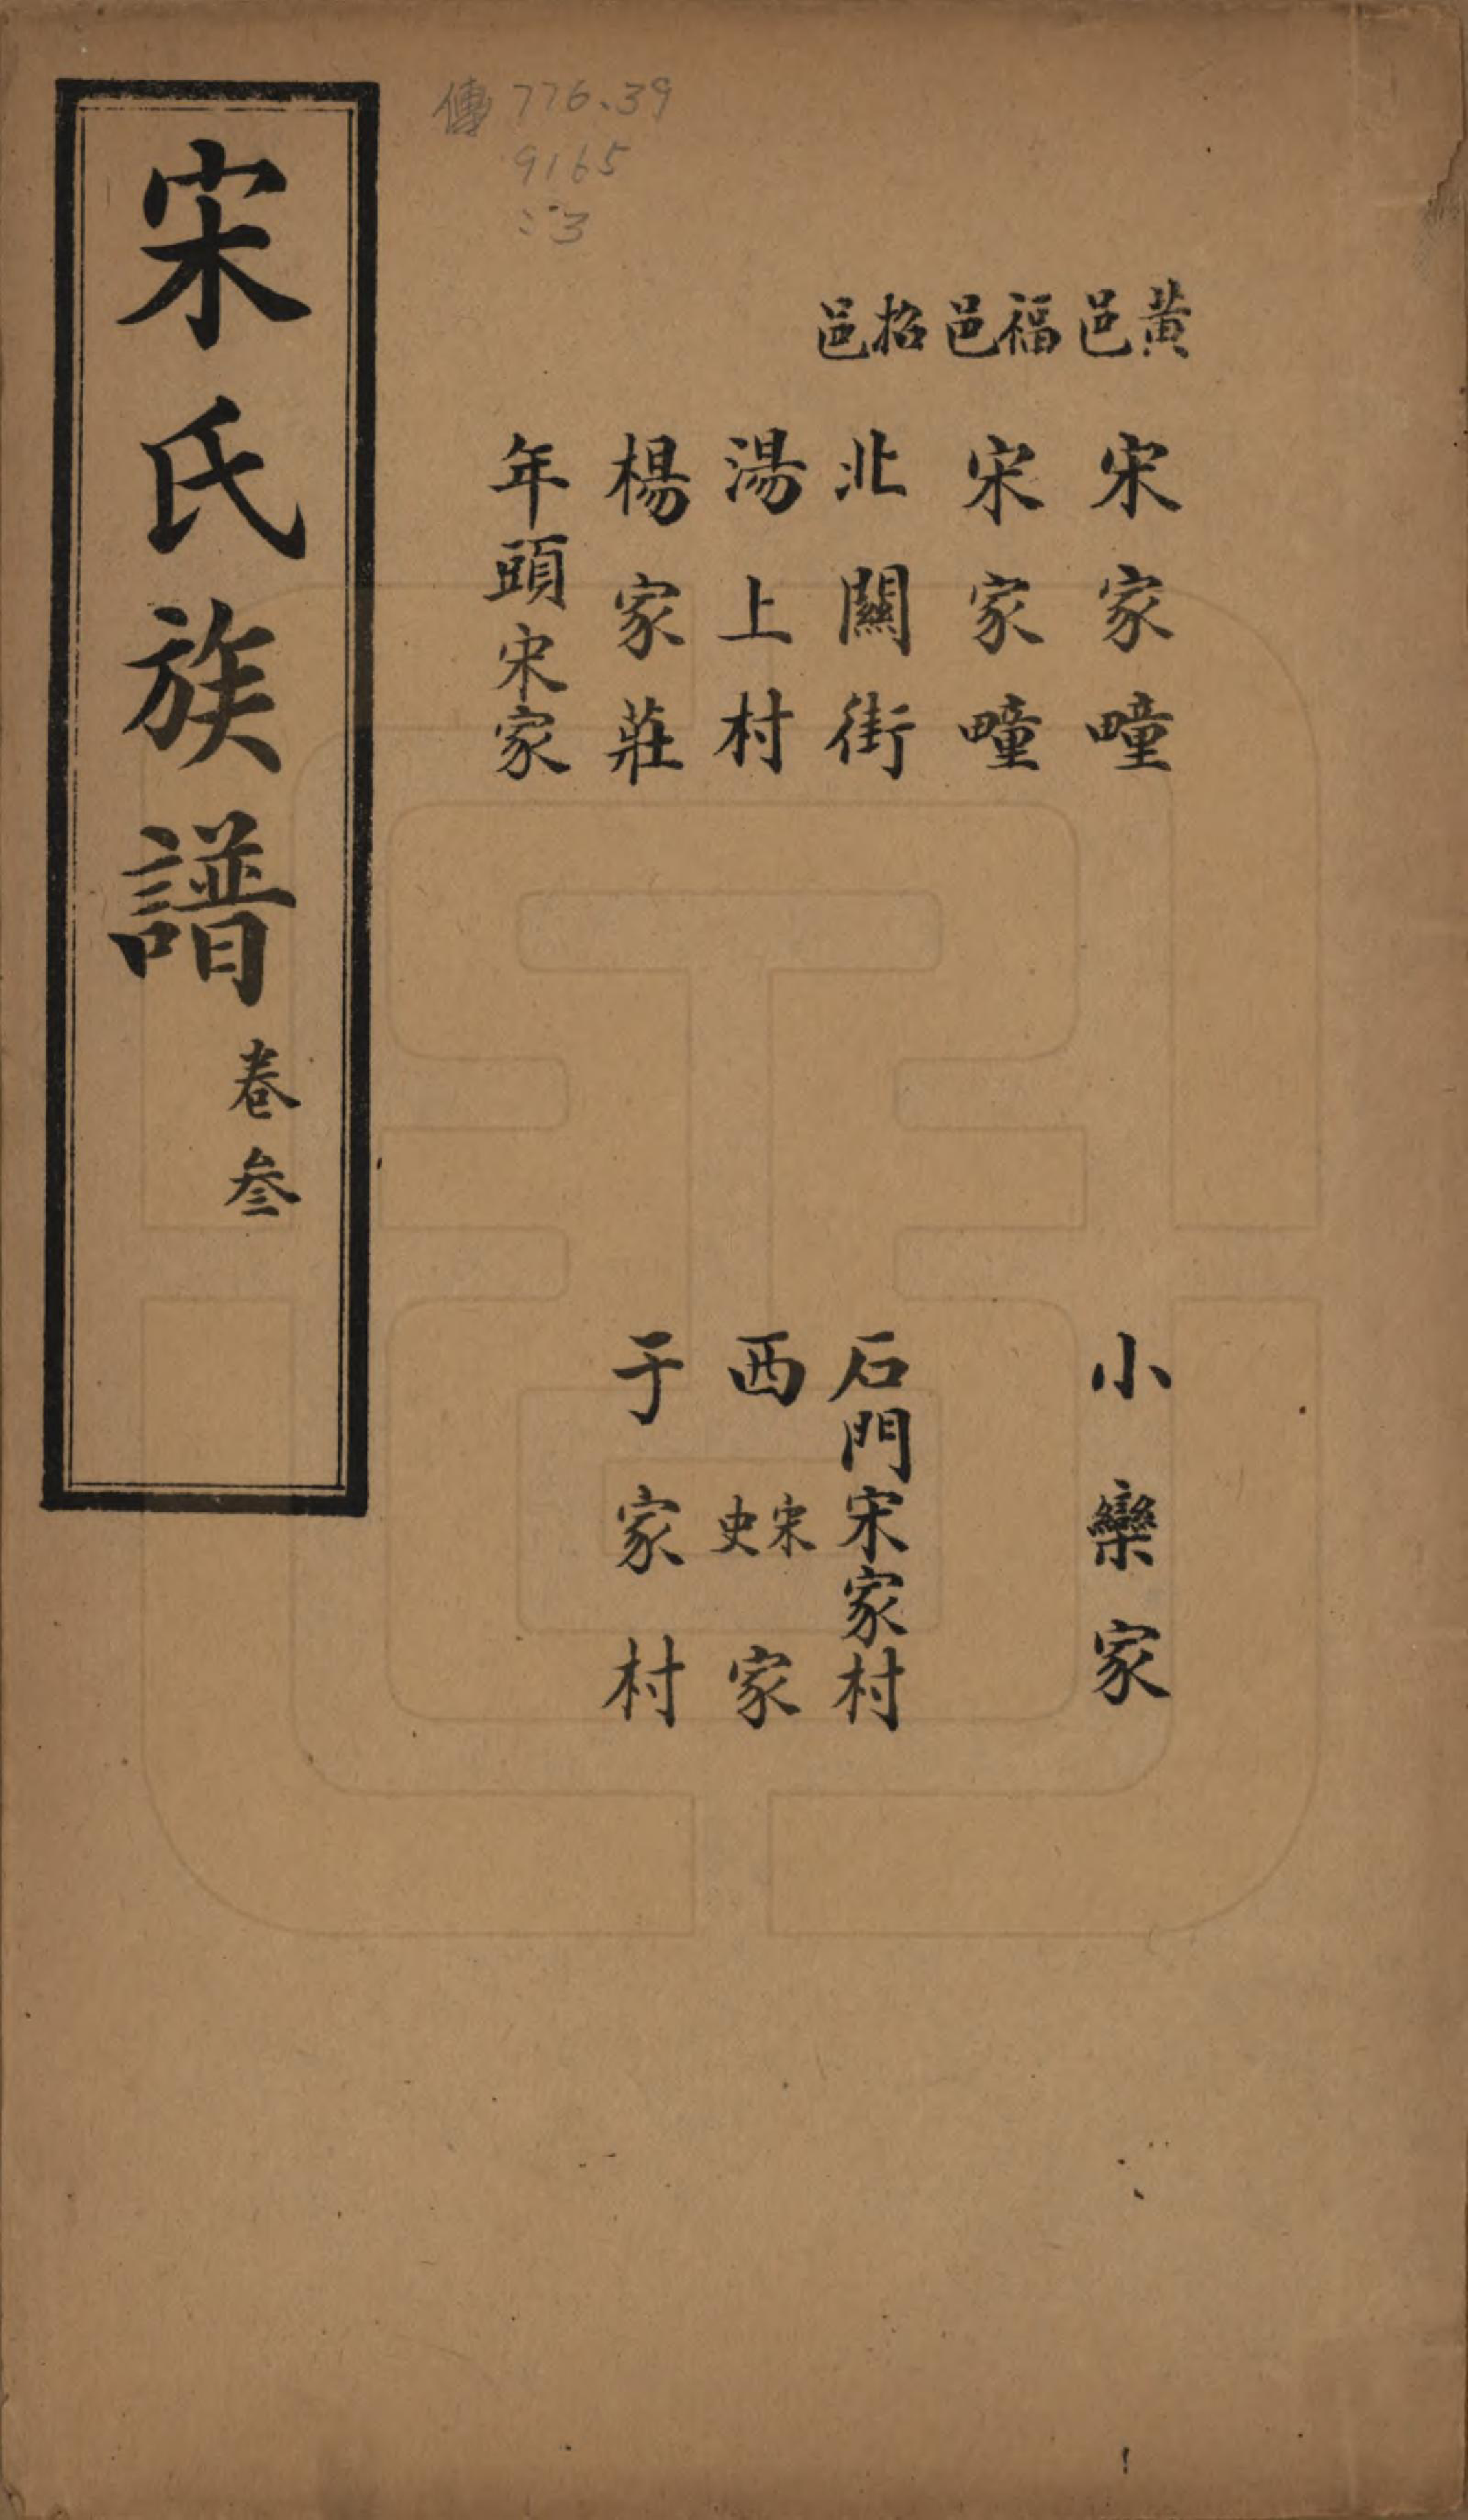 宋氏族譜 卷叁
傳 776.39
9165
:3
黃邑 宋家疃 小欒家
福邑 宋家疃
招邑 北關街 石門宋家村
湯上村 西宋史家
楊家莊 于家村
年頭宋家